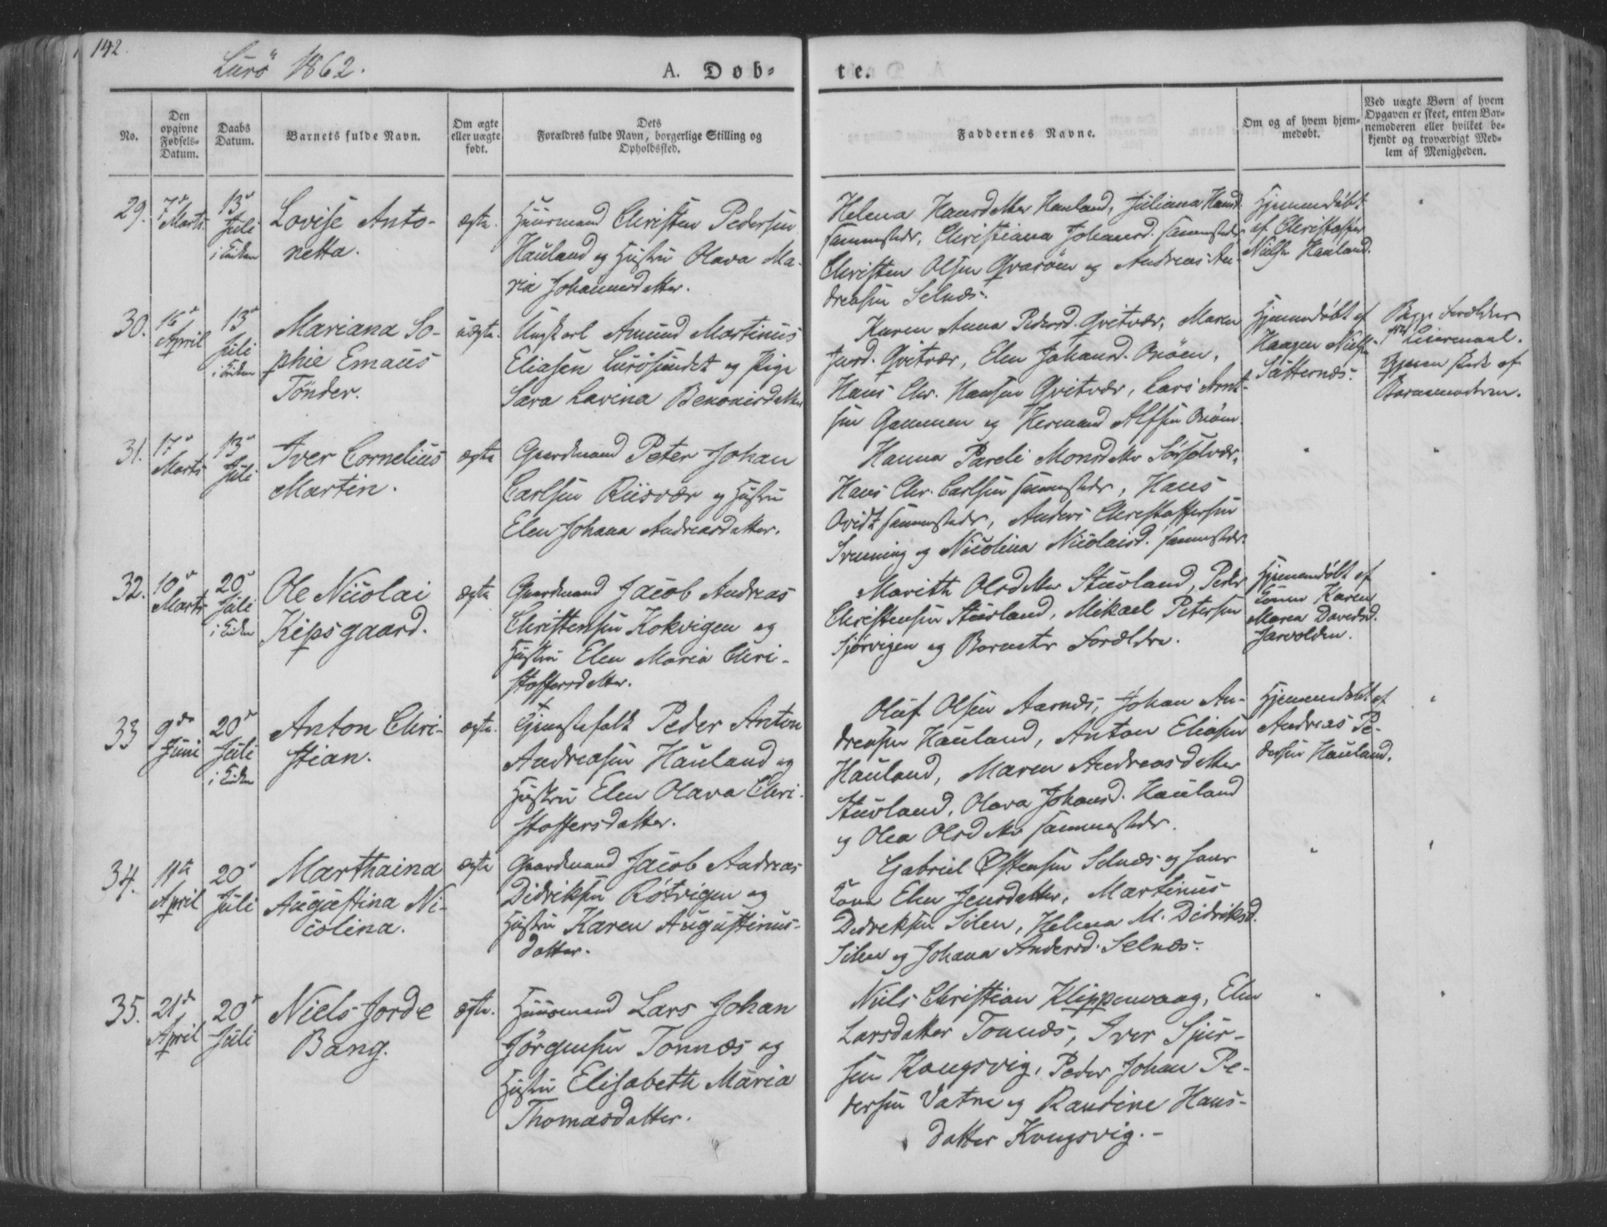 142.
Lurö 1862.
A. Dob-
te.
No.
Den
opgivne
Fødsels-
Datum.
Daabs
Datum.
Barnets fulde Navn.
Om ægte
eller uægte
født.
Dets
Forældres fulde Navn, borgerlige Stilling og
Opholdssted.
Faddernes Navne.
Om og af hvem hjem-
medøbt.
Ved uægte Børn af hvem
Opgaven er skeet, enten Bar-
nemoderen eller hvilket be-
kjendt og troværdigt Med-
lem af Menigheden.
29.
7de
Marts
13de
Juli
Lovise Anto-
netta.
ægte.
Huusmand Christen Pedersen
Hauland og Hustru Olava Ma-
ria Johannesdatter.
Helena Hansdatter Hauland, Juliana Hansd.
sammesteds, Christiana Johansd. sammesteds
Christen Olsen Qvarøen og Andreas An-
dreasen Selnæs.
Hjemmedøbt
af Christoffer
Nilsen Hauland.
30.
16de
April
13de
Juli
Mariana So-
phie Emaus
Tönder.
uægte.
Ungkarl Amund Martinus
Eliasen Lurösundet og Pige
Sara Lavina Benonisdatter
Karen Anna Pedersd. Qvitvær, Maren
Qvitvær, Elen Johansd.
Hans Chr. Hansen Qvitvær, Lars Arnt-
sen Gammen og Hermand Alfsen
Hjemmedøbt af
Haagen
Sætternæs.
Begge Forældres
Leiermaal.
af
Barnemoderen.
31.
17de
Marts
13de
Juli
Iver Cornelius
Martin.
ægte
Gaardmand Peter Johan
Carlsen Riisvær og Hustru
Elen Johana Andreasdatter.
Hanna Pareli Monsdatter
Hans Chr. Carlsen sammesteds, Hans
sammesteds, Anders Christoffersen
og Nicolina Nicolaisd. sammesteds.
32.
10de
Marts
20de
Juli
Ole Nicolai
Kipsgaard.
ægte
Gaardmand Jacob Andreas
Christensen Kokvigen og
Hustru Elen Maria Chri-
stoffersdatter.
Marith Olsdatter Stuvland, Peder
Christensen Stuvland, Mikael Petersen
og Barnets Forældre.
Hjemmedøbt af
Karen
Maria Davidsd.
33
9de
Juni
20de
Juli
Anton Chri-
stian.
ægte.
Peder Anton
Andreasen Hauland og
Hustru Elen Olava Chri-
stoffersdatter.
Oluf Olsen Aarnæs, Johan An-
dreasen Hauland, Anton Eliasen
Hauland, Maren Andreasdatter
Stuvland, Olava Johansd. Hauland
og Olea Olsdatter sammesteds.
Hjemmedøbt af
Andreas Pe-
dersen Hauland.
34.
11te
April
20de
Juli
Marthaina
Augustina Ni-
colina.
ægte
Gaardmand Jacob Andreas
Didriksen Rötvigen og
Hustru Karen Augustinus-
datter.
Gabriel Østensen Selnæs og hans
Kone Elen Jensdatter, Martinus
Didreksen Silen, Helena M. Didriksd.
Silen og Johana Andersd. Selnæs.
35.
21de
April
20de
Juli
Niels Jorde
Bang.
ægte.
Huusmand Lars Johan
Jörgensen Tonnæs og
Hustru Elisabeth Maria
Thomasdatter.
Niels Christian Klippenvaag, Elen
Larsdatter Tonnæs, Iver Sjur-
sen Kongsvig, Peder Johan Pe-
dersen Vatne og Rantine Hans-
datter Kongsvig.-